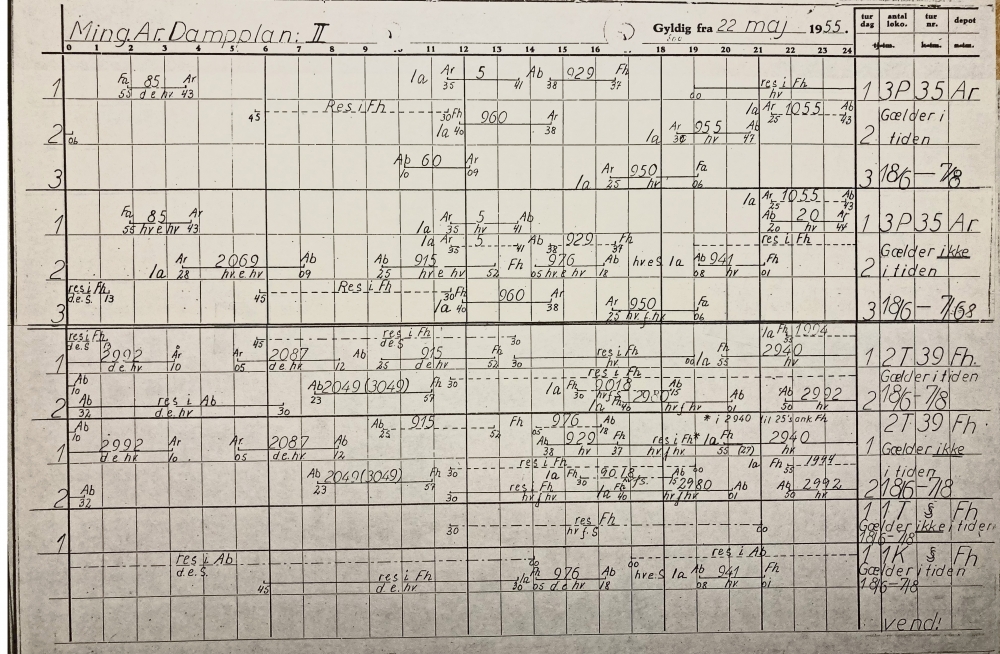 Ming. Ar. Dampplan: II
Gyldig fra 22 maj 1955.
tur dag antal loko. tur nr. depot
0 1 2 3 4 5 6 7 8 9 11 12 13 14 15 16 17 18 19 20 21 22 23 24
1 Fa 85 Ar la Ar 5 Ab 929 Fh res i Fh 1 3P 35 Ar
55 d.e.hv 43 35 41 38 37 00 hv
45 Res i Fh 30 Fh 960 Ar la Ar 1055 Ab Gælder i
2 06 la 40 38 la Ar 955 Ab 25 43 2 tiden
30 hv 47
3 Ab 60 Ar la Ar 950 Fa 3 18/6 — 7/8
10 09 25 hv 06
la Ar 1055 Ab
25 43
1 Fa 85 Ar la Ar 5 Ab Ab 20 Ar 1 3P 35 Ar
55 hv e hv 43 35 hv 41 20 hv 44
la Ar 5 Ab 929 Fh res i Fh
35 41 38 37
2 la Ar 2069 Ab Ab 915 Fh 976 Ab hv e S la Ab 941 Fh 2 Gælder ikke
28 hv.e hv 09 25 hv e hv 52 05 hv e hv 18 08 hv 01 i tiden
res i Fh 13 45 Res i Fh 30 Fh
d.e.S.
3 la 40 960 Ar Ar 950 Fa 3 18/6 — 7/8
38 25 hv.f.hv 06
res i Fh 45 res i Fh 30 la Fh 1994
d.e.S d.e.S 33
1 2992 Ar Ar 2087 Ab 915 Fh res i Fh la Fh 2940 1 2T 39 Fh.
d.e hv 10 05 d.e hv 12 25 d.e hv 52 30 hv 00 55 hv
Ab res i Fh Gælder i tiden
10 Ab 2049 (3049) Fh 30 la Fh 9018 Ar
2 Ab res i Ab 23 57 30 la Fh 2980 Ab Ab 2992 2 18/6 — 7/8
32 d.e.hv 30 40 hv f hv 01 50 hv
Ab Ab 915 Fh 976 Ab * i 2940 til 25's ank Fh 2T 39 Fh
10 25 52 05 18
1 2992 Ar Ar 2087 Ab Ab 929 Fh res i Fh * la Fh 2940 1 Gælder ikke
d.e hv 10 05 d.e hv 12 38 hv 37 hv 55 (27) hv
Ab 2049 (3049) Fh 30 res i Fh la Fh 9018 00 la Fh i tiden
23 57 30 33
2 Ab 30 res i Fh la Fh 2980 Ab Ab 2992 2 18/6 — 7/8
32 hv f hv 40 hv f hv 01 50 hv
1 30 res i Fh 00 1 1T § Fh
hv f. S Gælder ikke i tiden
18/6 — 7/8
res i Ab 00 res i Ab 1 1K § Fh
d.e.S. Gælder i tiden
45 res i Fh Fh 976 Ab hv e S la Ab 941 Fh 18/6 — 7/8
d.e.hv 30 05 d e hv 18 08 hv 01
vend!